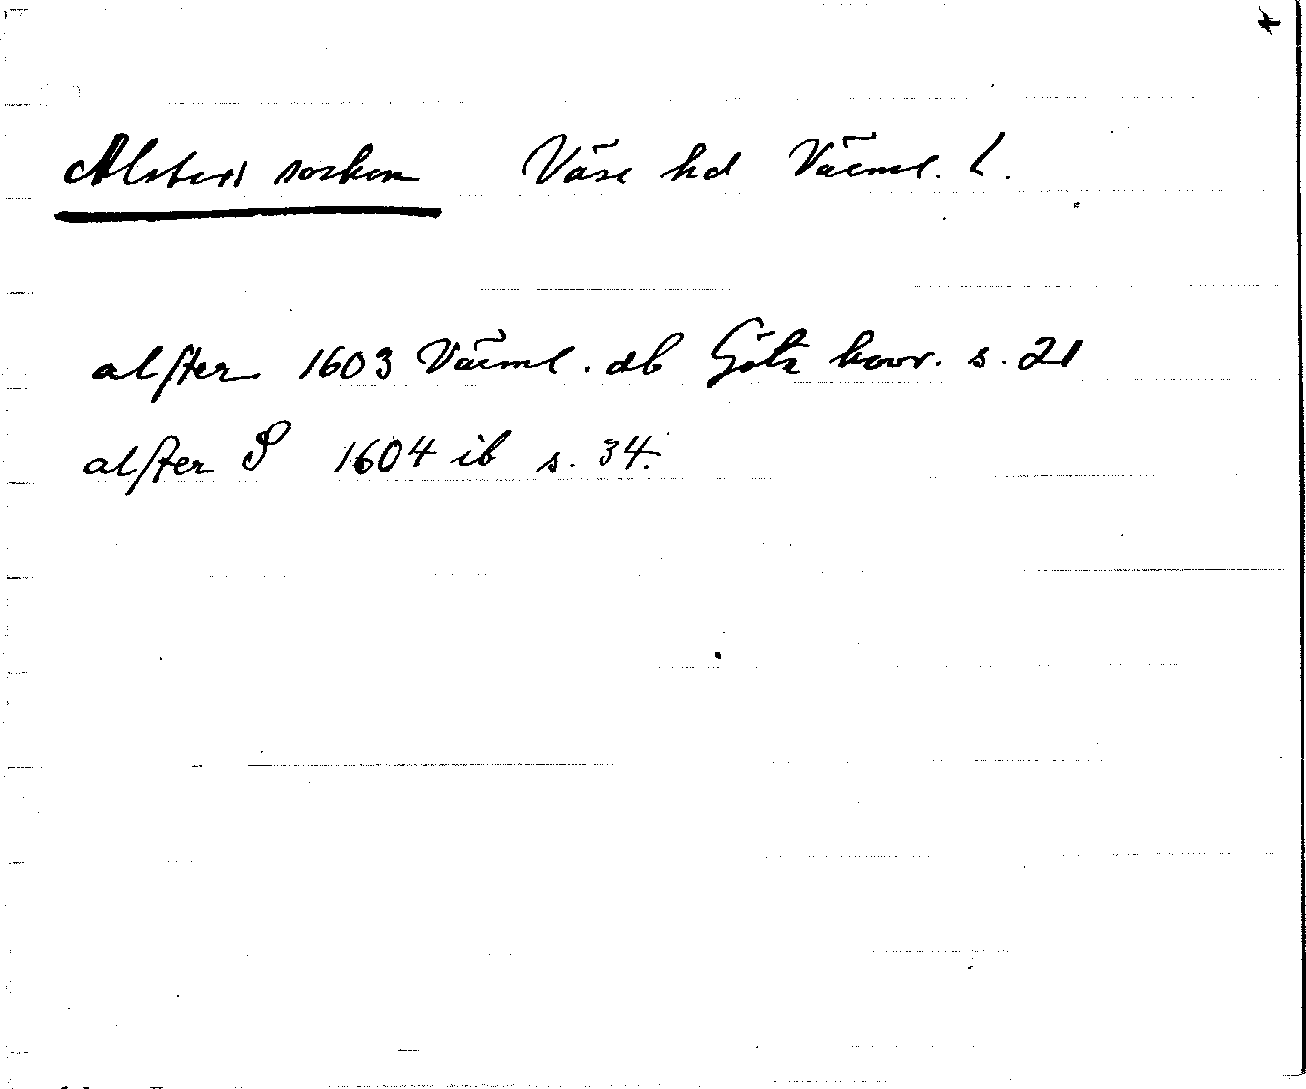 Alsters socken Väse hd Värml. l.
alster 1603 Värml. db Göta hovr. s. 21
alster S 1604 ib s. 34.